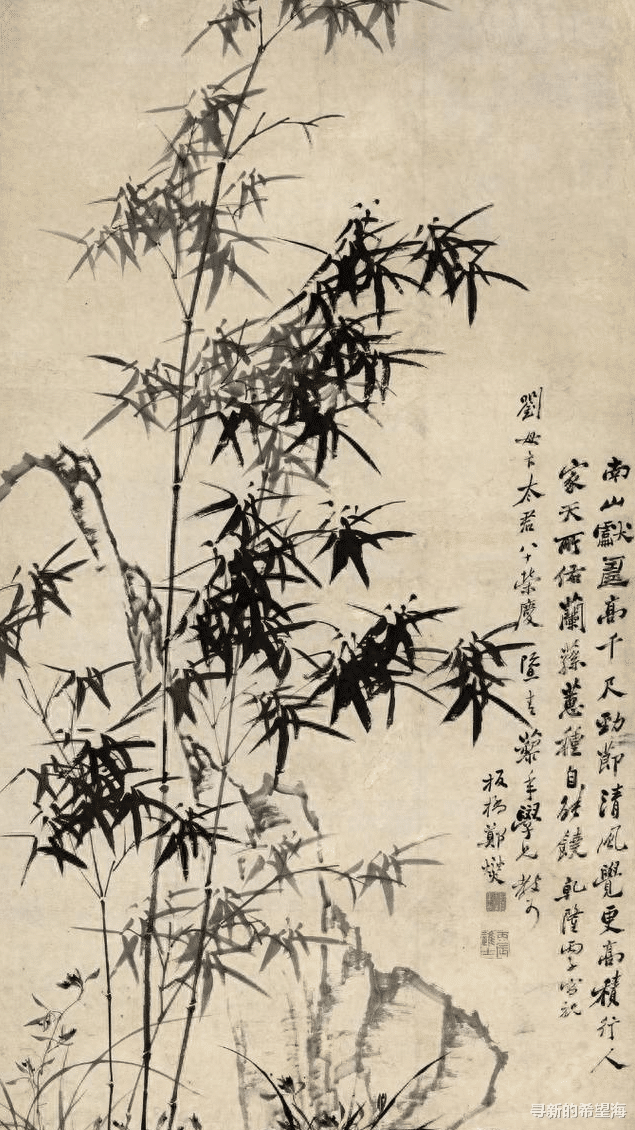 南山獻壽高千尺勁節清風覺更高積行人
家天所佑蘭蓀蕙種自能饒 乾隆丙子寫祝
劉母卞太君八十榮慶 暨青藜年學兄教可
板橋鄭燮
丙辰進士
寻新的希望海